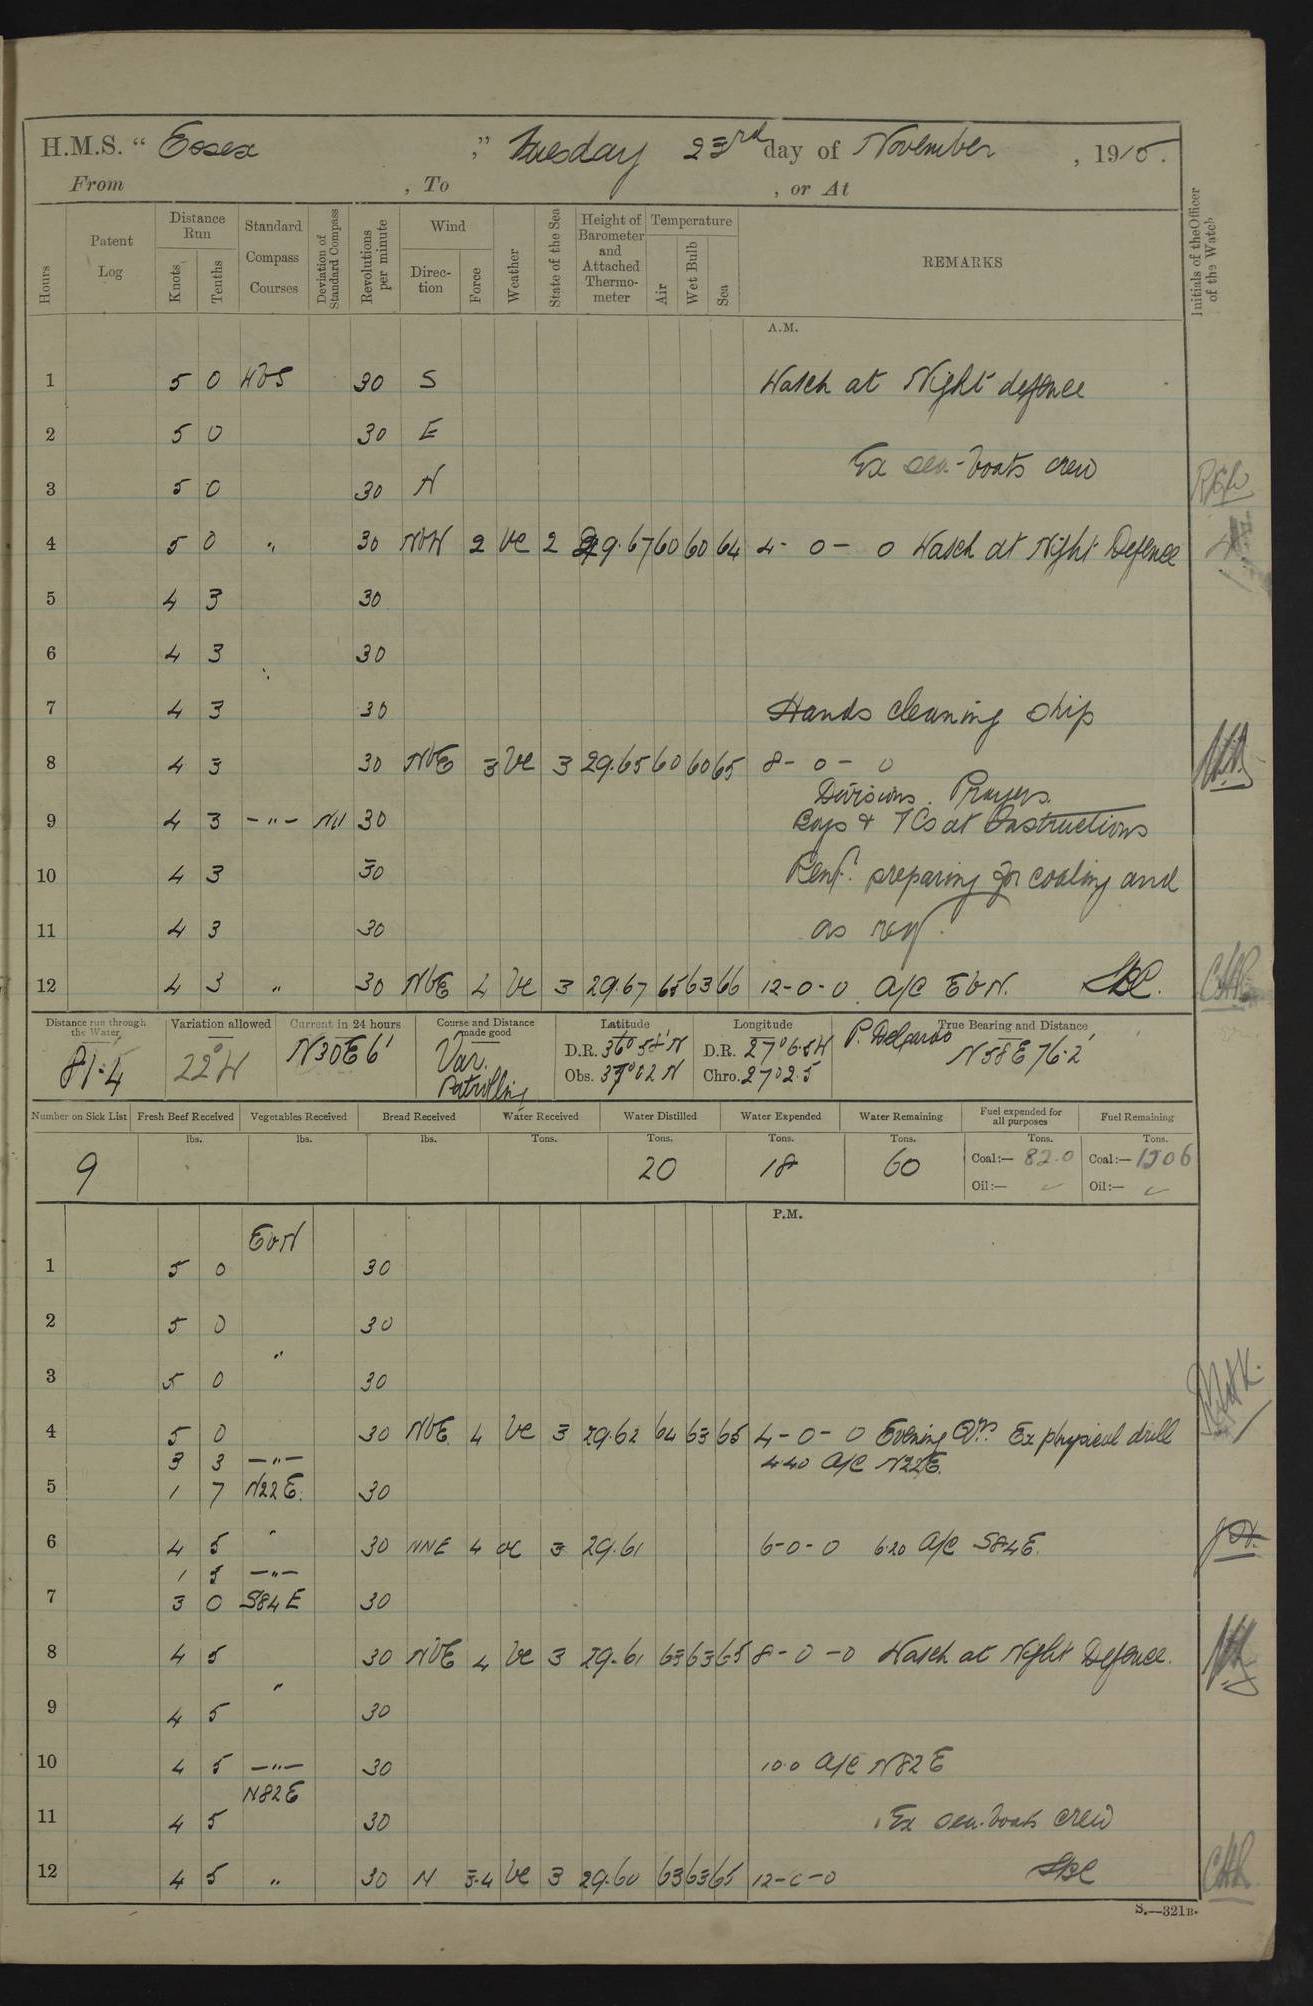 H.M.S. " Essex ," Tuesday 23rd day of November , 1915.
From , To , or At
Hours
Patent Log
Distance Run
Knots
Tenths
Standard Compass Courses
Deviation of Standard Compass
Revolutions per minute
Wind
Direc-tion
Force
Weather
State of the Sea
Height of Barometer and Attached Thermo-meter
Temperature
Air
Wet Bulb
Sea
REMARKS
Initials of the Officer of the Watch
A.M.
1 5 0 WbS 30 S Watch at Night defence
2 5 0 30 E
Ex sea-boats crew
3 5 0 30 N
4 5 0 " 30 NbW 2 bc 2 29.67 60 60 64 4-0-0 Watch at Night Defence
5 4 3 30
6 4 3 30
7 4 3 30 Hands cleaning ship
8 4 3 30 NbE 3 bc 3 29.65 60 60 65 8-0-0
Divisions. Prayers.
9 4 3 -"- Nil 30 Boys & TCs at Instructions
10 4 3 30 Rem. preparing for coaling and
11 4 3 30 as req.
12 4 3 " 30 NbE 4 bc 3 29.67 65 63 66 12-0-0 A/C EbN.
Distance run through the Water
81.4
Variation allowed
22° W
Current in 24 hours
N30E 6'
Course and Distance made good
Var.
Patrolling
Latitude
D.R. 36° 58' N
Obs. 37° 02 N
Longitude
D.R. 27° 6.5 W
Chro. 27 02.5
True Bearing and Distance
P. Delgardo
N58E 76.2'
Number on Sick List
9
Fresh Beef Received
lbs.
Vegetables Received
lbs.
Bread Received
lbs.
Water Received
Tons.
Water Distilled
Tons.
20
Water Expended
Tons.
18
Water Remaining
Tons.
60
Fuel expended for all purposes
Tons.
Coal:— 82.0
Oil:—
Fuel Remaining
Tons.
Coal:— 1506
Oil:—
P.M.
EbN
1 5 0 30
2 5 0 30
"
3 5 0 30
4 5 0 30 NbE 4 bc 3 29.62 64 63 65 4-0-0 Evening Qrs. Ex physical drill
3 3 -"- 4.40 A/C N22E.
5 1 7 N22E. 30
6 4 5 " 30 NNE 4 oc 3 29.61 6-0-0 6.20 A/C S84E.
1 5 -"-
7 3 0 S84E 30
8 4 5 30 NbE 4 bc 3 29.61 63 63 65 8-0-0 Watch at Night Defence.
"
9 4 5 30
10 4 5 -"- 30 10.0 A/C N82E
N82E
11 4 5 30 Ex sea-boats crew
12 4 5 " 30 N 3-4 bc 3 29.60 63 63 65 12-0-0
S.—321B.